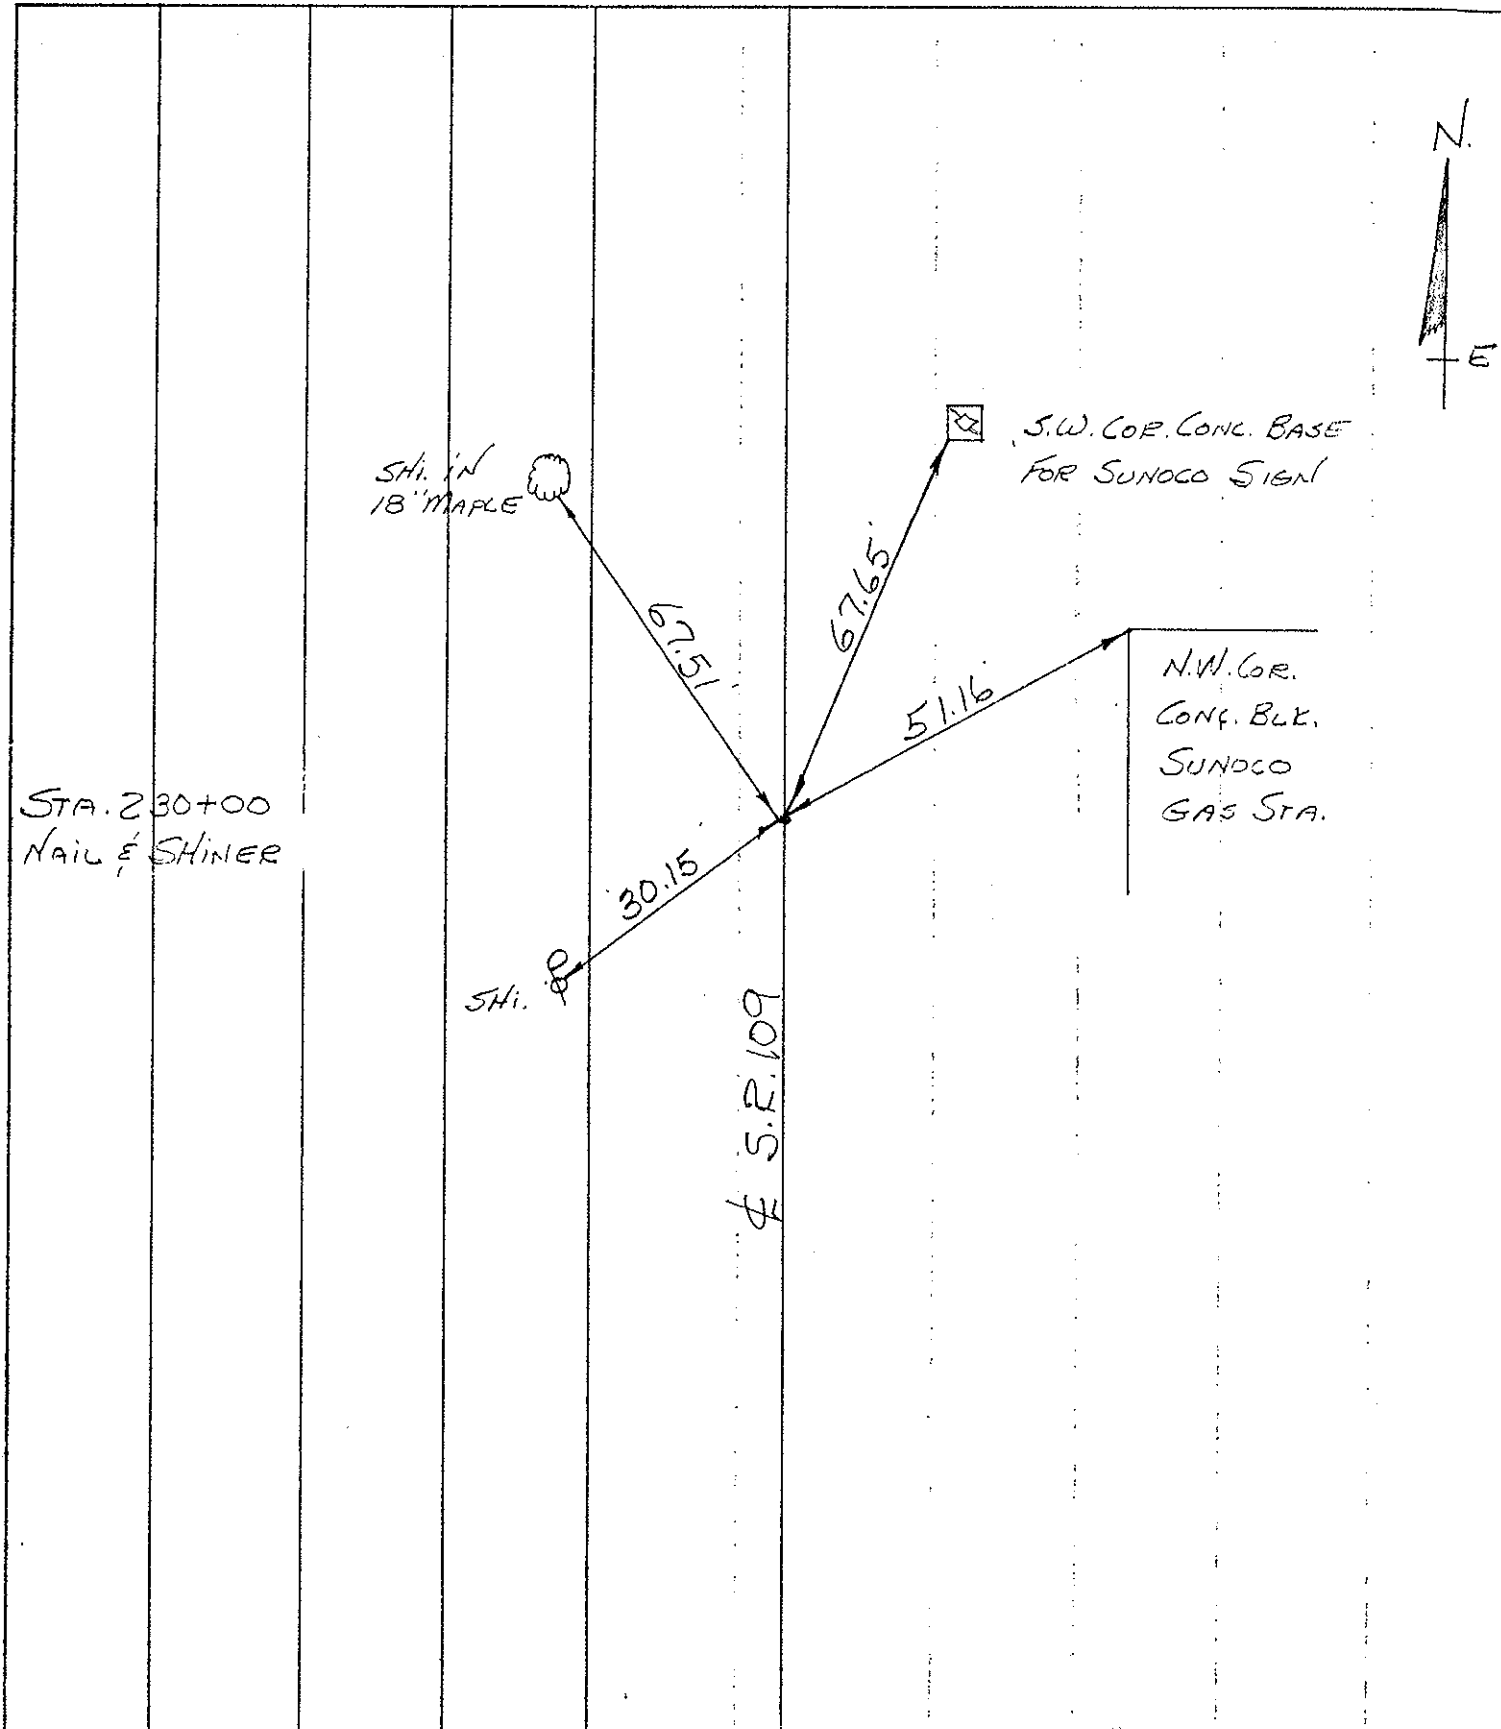 N.
E
S.W. COR. CONC. BASE
FOR SUNOCO SIGN
SHI. IN
18" MAPLE
67.51
67.65
51.16
N.W. COR.
CONC. BLK.
SUNOCO
GAS STA.
STA. 230+00
NAIL & SHINER
30.15
SHI.
℄ S.R. 109